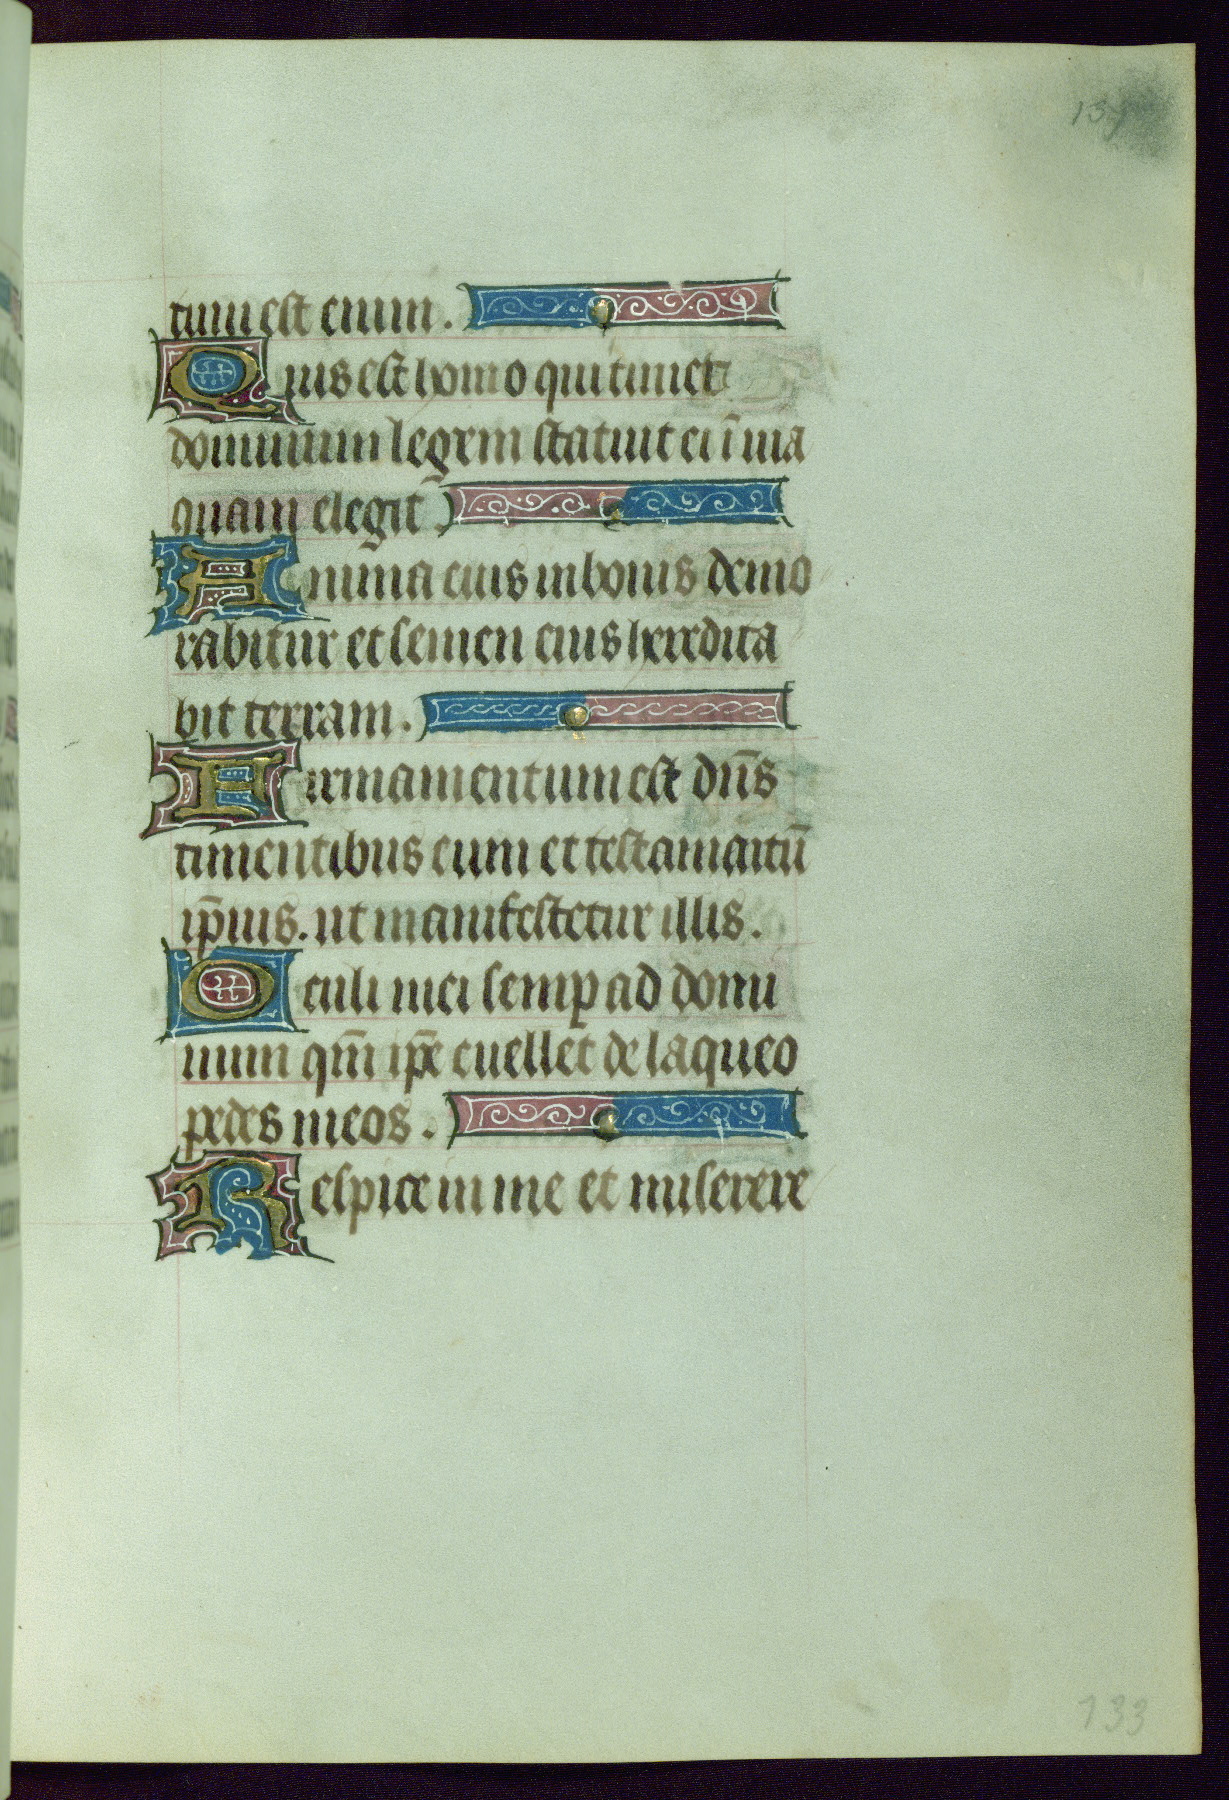 137
tum est enim.
Quis est homo qui timet
dominum legem statuit ei ī uia
quam elegit.
Anima eius in bonis demo
rabitur et semen eius heredita
bit terram.
Firmamentum est dn̄s
timentibus eum et testamentū
ip̄ius. ut manifestetur illis.
Oculi mei semp ad domi
num qm̄ ip̄e euellet de laqueo
pedes meos.
Respice in me et miserere
133